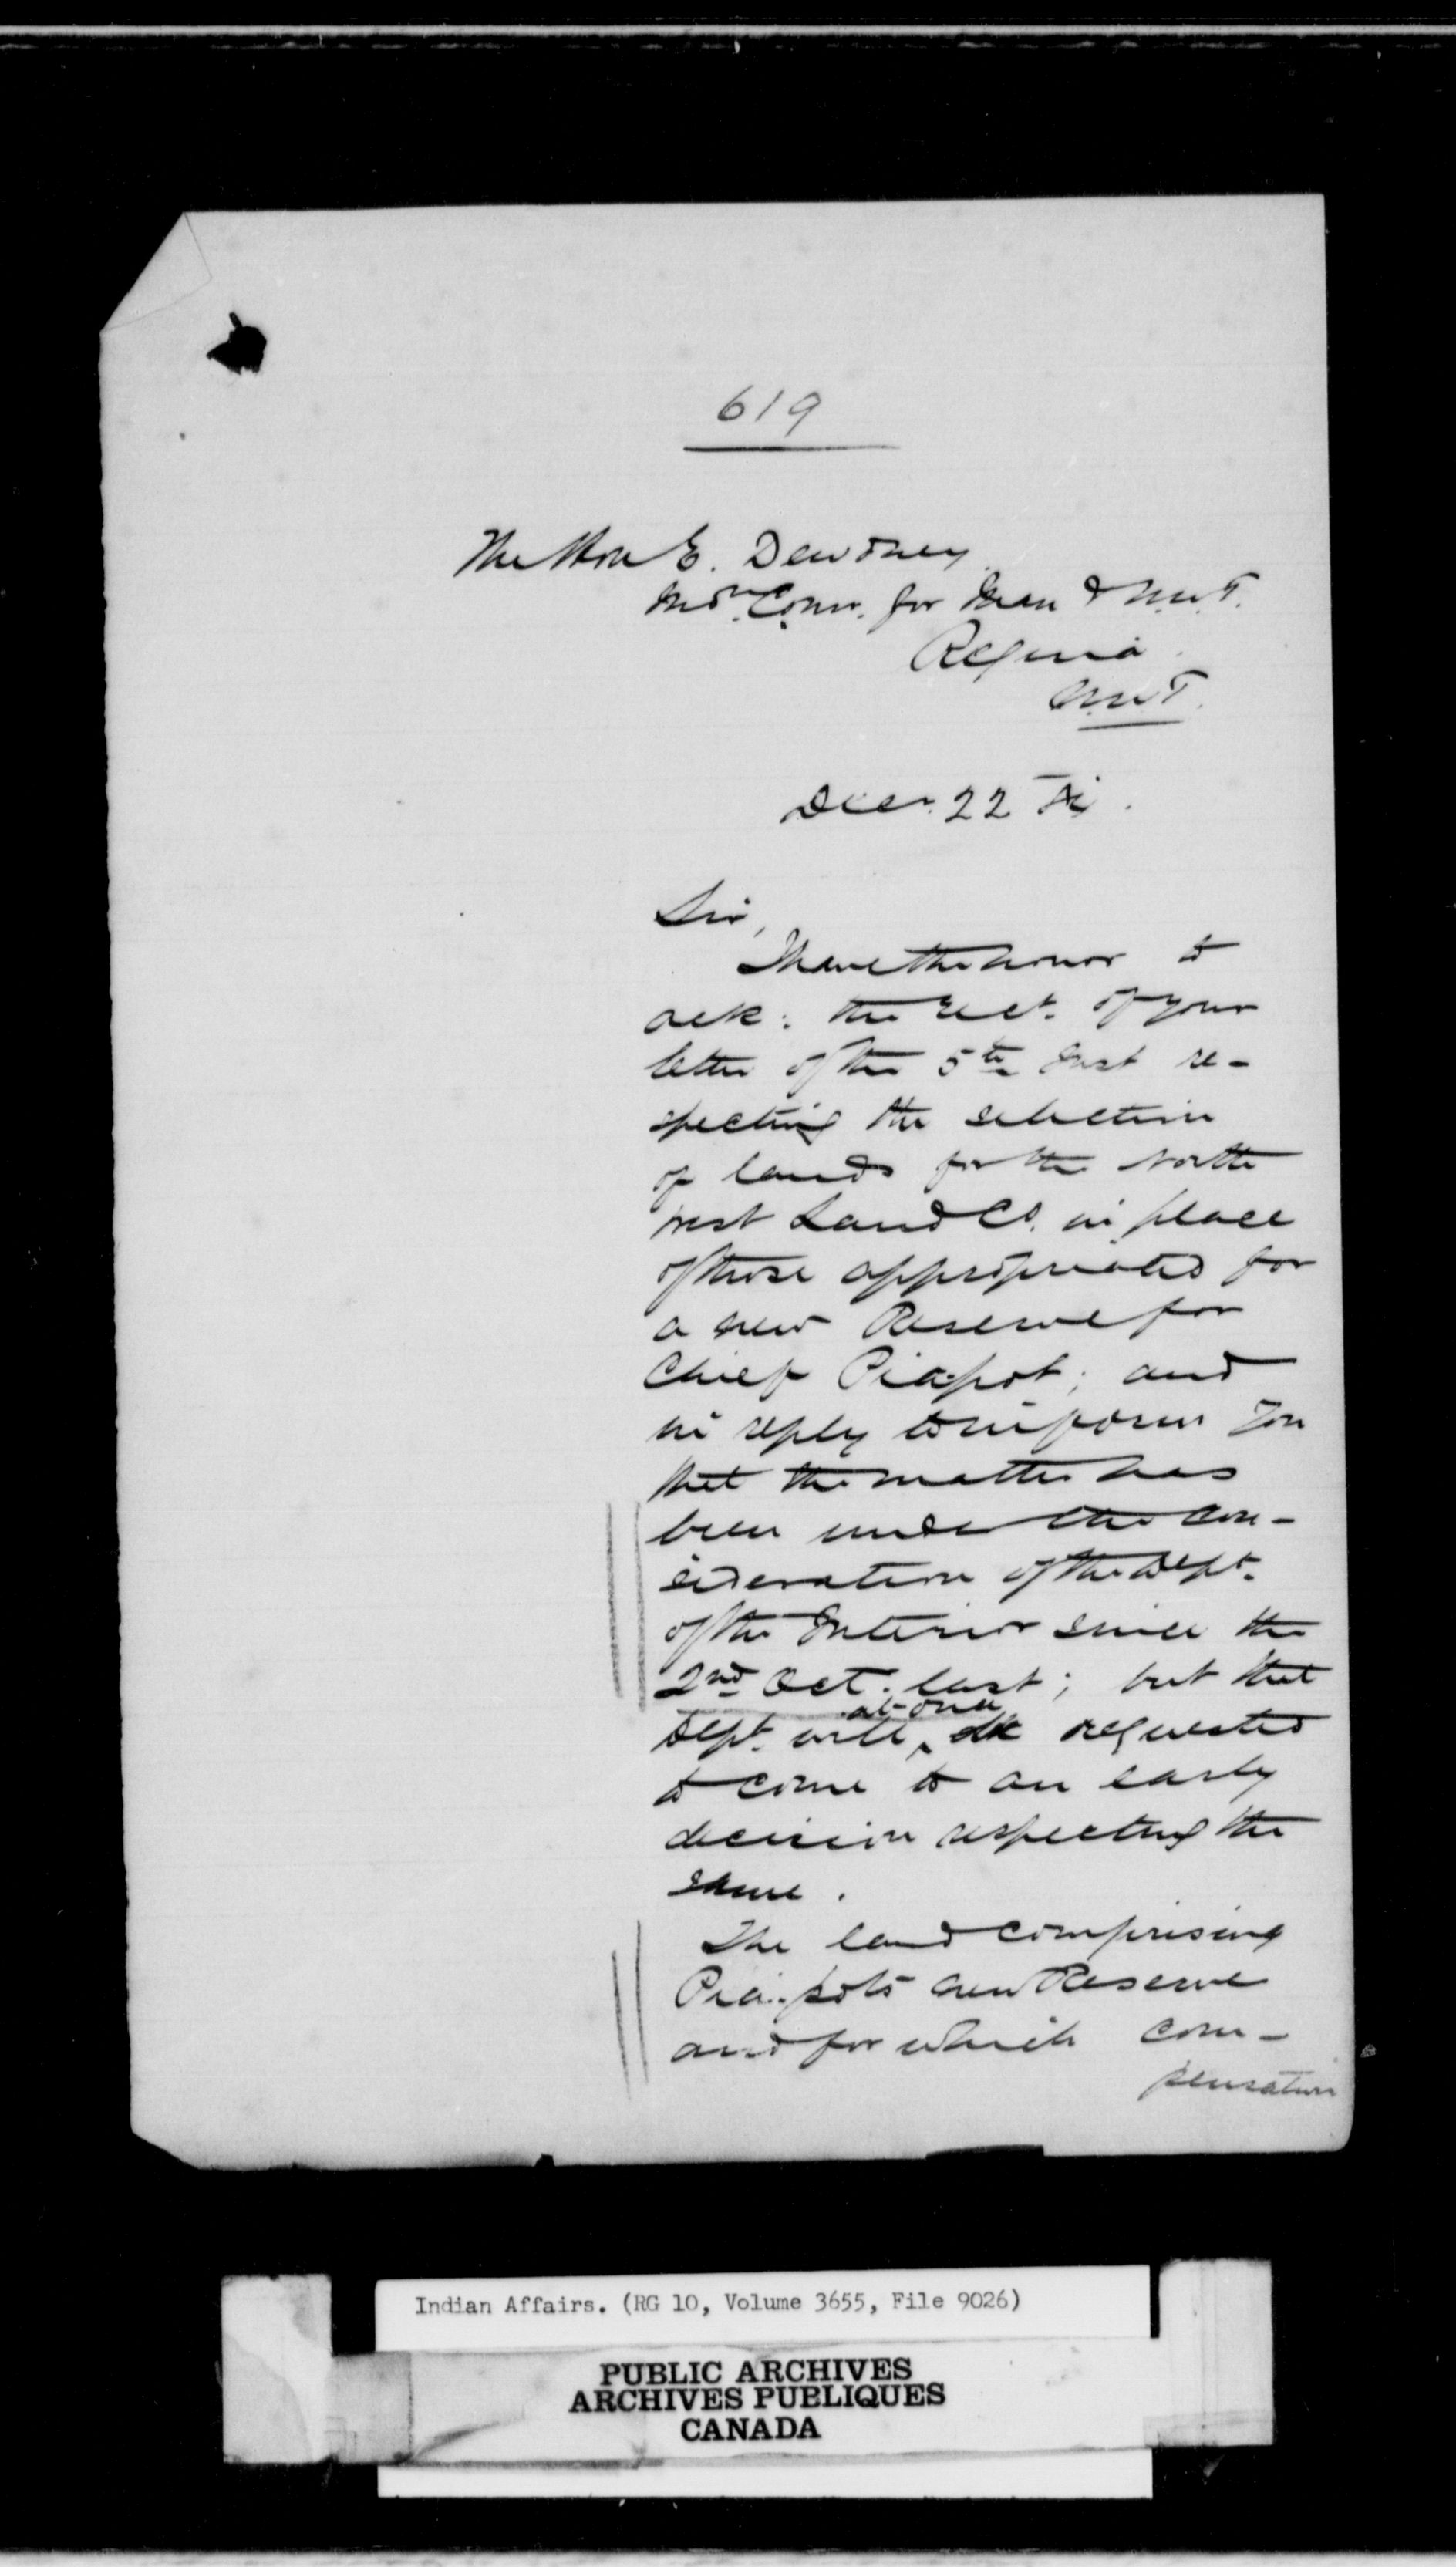 619
The Hon E. Dewdney
Indn. Comr. for Man & N.W.T.
Regina
N.W.T.
Decr. 22
Sir,
I have the honor to
ack: the rect. of your
letter of the 5th Inst re-
specting the selection
of lands for the North
west Land Co. in place
of those appropriated for
a new Reserve for
Chief Piapot; and
in reply to inform you
that the matter has
been under the con-
sideration of the Dept.
of the Interior since the
2nd Oct. last; but that
at once
Dept. will be requested
to come to an early
decision respecting the
same.
The land comprising
Pia-pots new Reserve
and for which com-
pensation
Indian Affairs. (RG 10, Volume 3655, File 9026)
PUBLIC ARCHIVES
ARCHIVES PUBLIQUES
CANADA